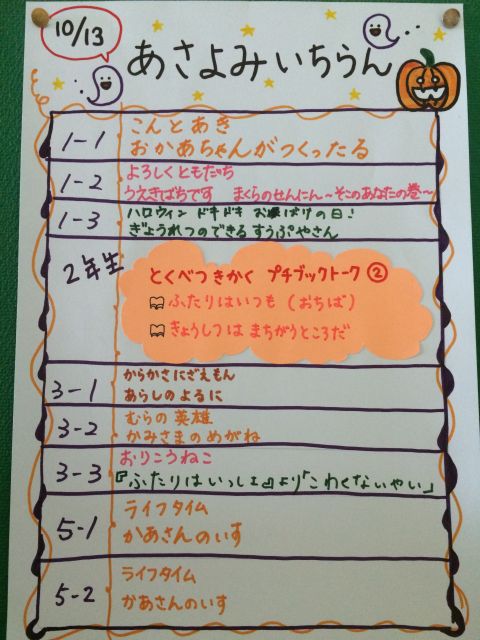 10/13
あさよみいちらん
1-1
こんとあき
おかあちゃんがつくったる
1-2
よろしくともだち
うえきばちです まくらのせんにん〜そこのあなたの巻〜
1-3
ハロウィン ドキドキ おばけの日!
ぎょうれつのできるすうぷやさん
2年生
とくべつきかく プチブックトーク②
ふたりはいつも(おちば)
きょうしつは まちがうところだ
3-1
からかさにざえもん
あらしのよるに
3-2
むらの英雄
かみさまのめがね
3-3
おりこうねこ
『ふたりはいっしょ』より「こわくないやい」
5-1
ライフタイム
かあさんのいす
5-2
ライフタイム
かあさんのいす